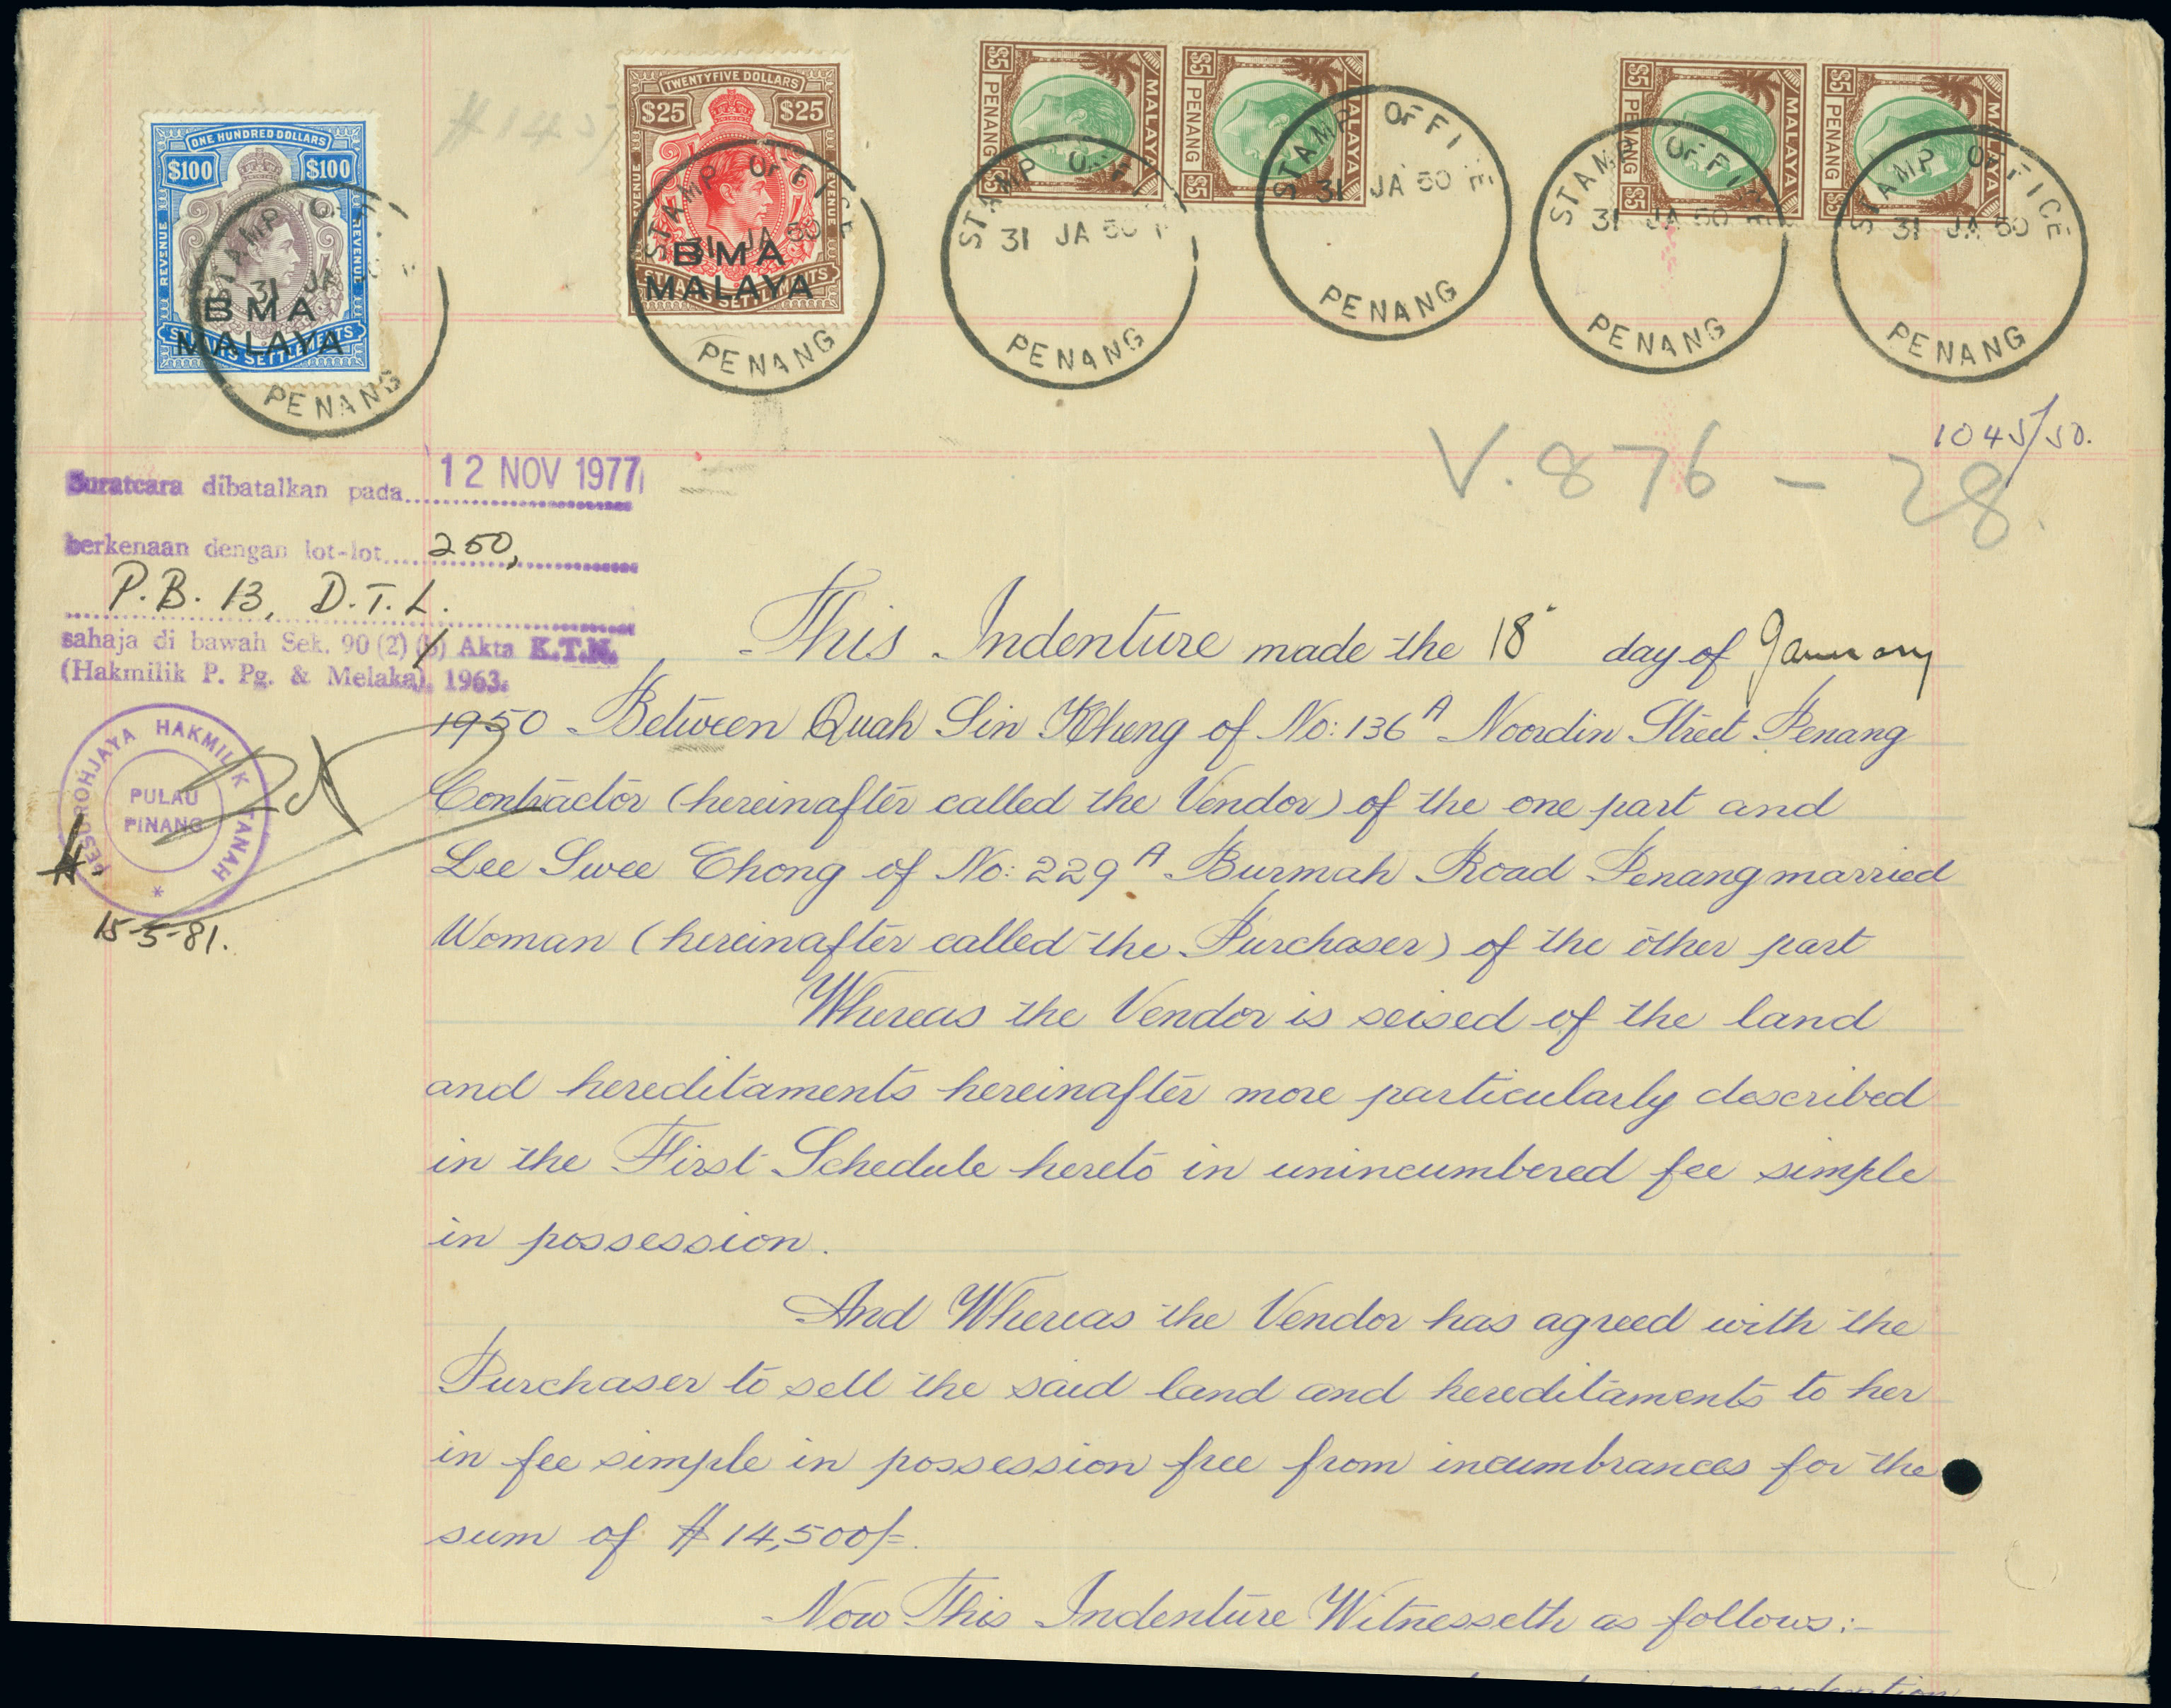 ONE HUNDRED DOLLARS
$100 $100
REVENUE REVENUE
BMA
MALAYA
STRAITS SETTLEMENTS
STAMP
31 JA
PENANG
TWENTYFIVE DOLLARS
$25 $25
REVENUE REVENUE
BMA
MALAYA
STAMP OFFICE
31 JA 50
PENANG
$5 PENANG MALAYA
$5 PENANG MALAYA
STAMP
31 JA 50
PENANG
STAMP OFFI E
31 JA 50
PENANG
$5 PENANG MALAYA $5
$5 PENANG MALAYA $5
STAMP OFFI E
31 JA 50
PENANG
STAMP OFFICE
31 JA 50
PENANG
1045/50.
V. 876 - 28.
Suratcara dibatalkan pada 12 NOV 1977
berkenaan dengan lot-lot 250,
P.B. 13, D.T.L.
sahaja di bawah Sek. 90 (2) Akta K.T.N.
(Hakmilik P. Pg. & Melaka), 1963.
PESUROHJAYA HAKMILIK TANAH
PULAU
PINANG
15-5-81.
This Indenture made the 18 day of January
1950 Between Quah Sin Kheng of No: 136A Noordin Street Penang
Contractor (hereinafter called the Vendor) of the one part and
Lee Swee Chong of No: 229A Burmah Road Penang married
Woman (hereinafter called the Purchaser) of the other part
Whereas the Vendor is seised of the land
and hereditaments hereinafter more particularly described
in the First Schedule hereto in unincumbered fee simple
in possession.
And Whereas the Vendor has agreed with the
Purchaser to sell the said land and hereditaments to her
in fee simple in possession free from incumbrances for the
sum of $14,500/=.
Now This Indenture Witnesseth as follows:-